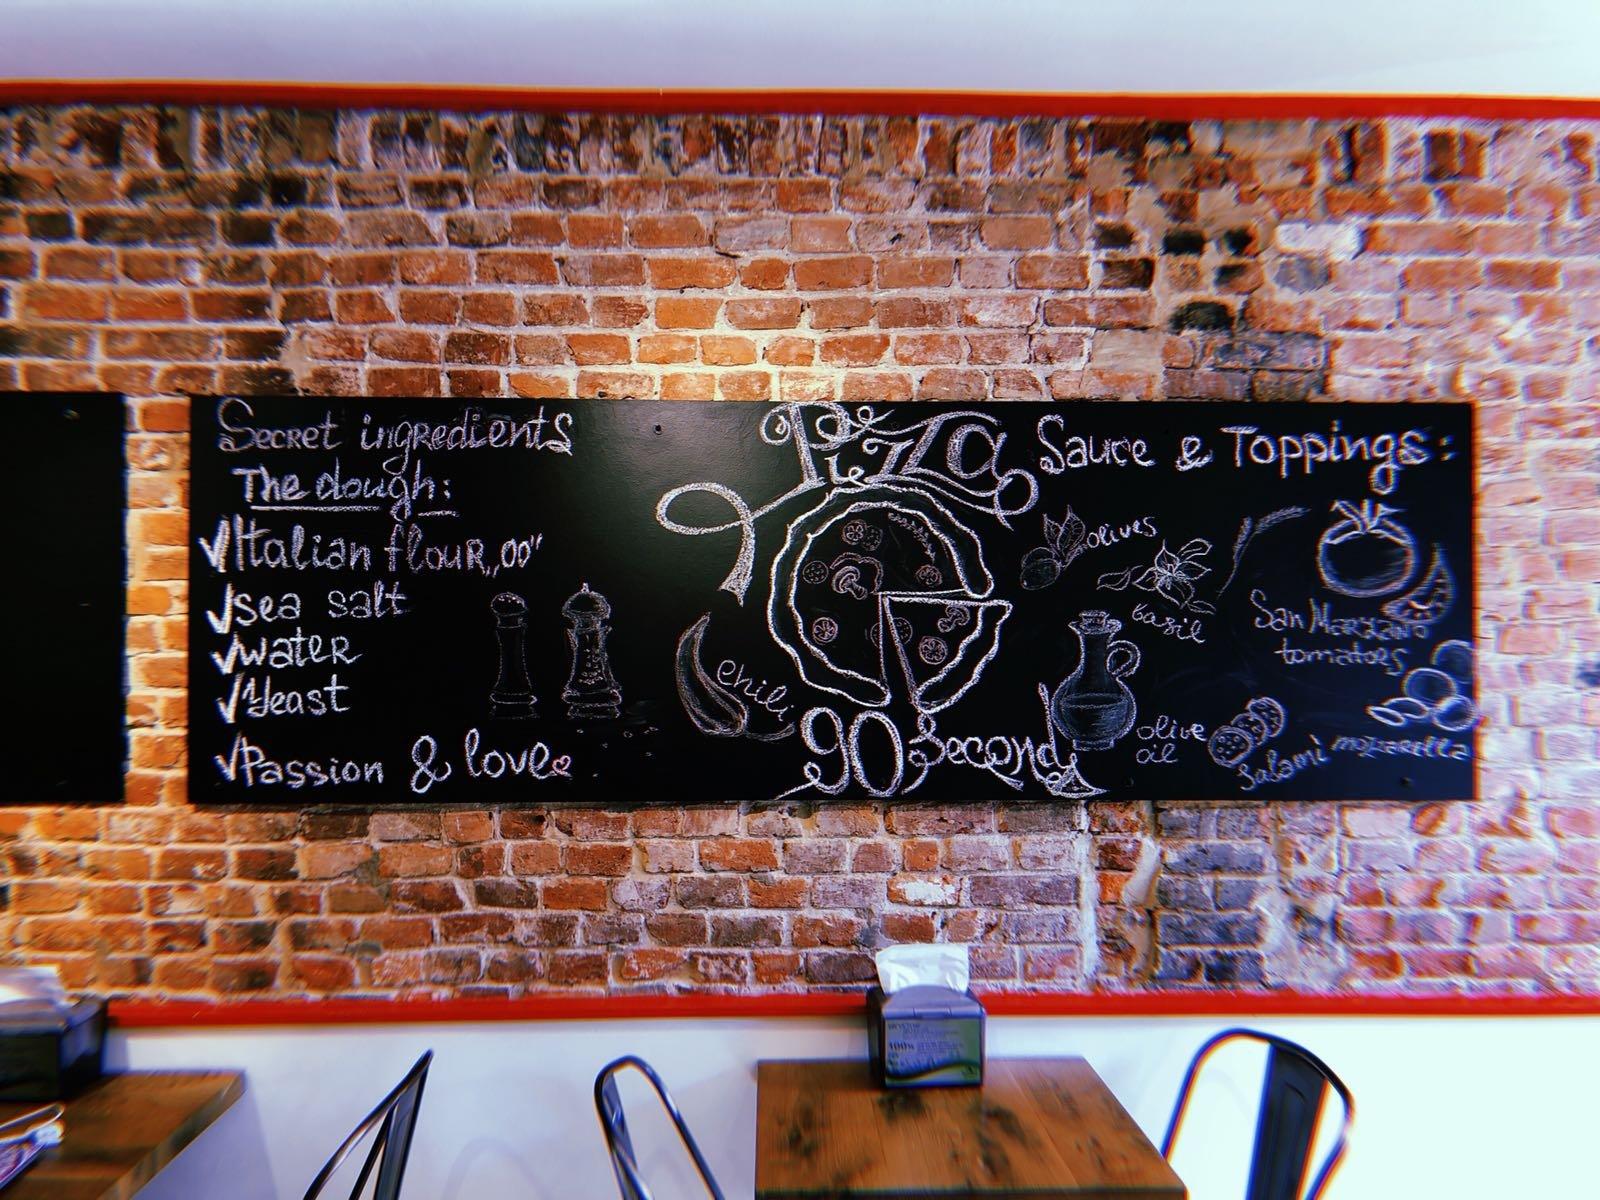 Secret ingredients
The dough:
Italian flour „00"
sea salt
water
Yeast
Passion & love
Pizza
90 Seconds
chili
Sauce & Toppings:
olives
basil
San Marzano
tomatoes
olive
oil
Salami
mozarella
100%